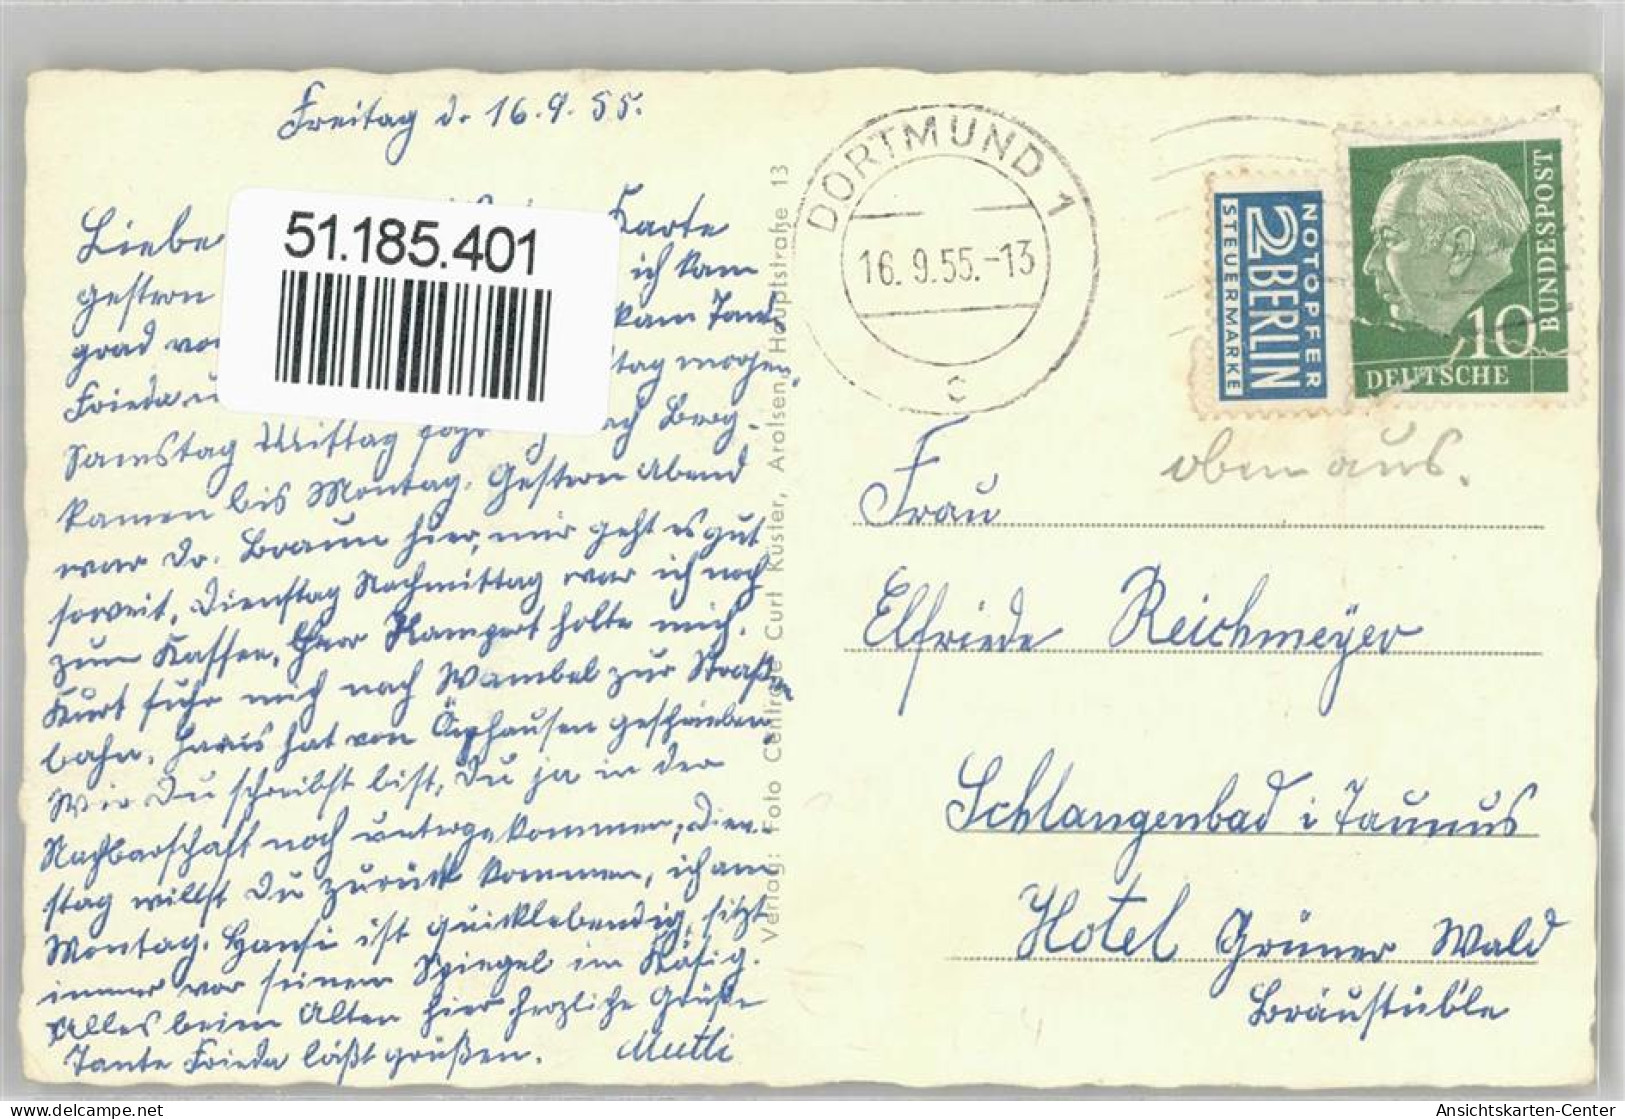 Freitag d. 16.9.55.
Liebe Karte
gestern ich kam
grad kam Tante
Frieda u tag morgen
Samstag Mittag nach Berg-
kamen bis Montag. Gestern Abend
war Dr. Braun hier, mir geht es gut
soweit. Dienstag Nachmittag war ich noch
zum Kaffee, Herr Kampert holte mich.
Kurt fuhr mich nach Wambel zur Straßen
bahn. hat von geschrieben.
Wie Du schreibst bist Du ja in der
Nachbarschaft noch untergekommen, Dien-
stag willst Du zurück kommen, ich am
Montag. Hansi ist quicklebendig, sitzt
immer vor seinem Spiegel im Käfig.
Alles beim Alten hier herzliche Grüße
Tante Frieda läßt grüßen. Mutti
51.185.401
Verlag: Foto Centrale Curt Küster, Arolsen, Hauptstraße 13
DORTMUND 1
16.9.55.-13
c
NOTOPFER
2 BERLIN
STEUERMARKE
10
DEUTSCHE
BUNDESPOST
oben aus.
Frau
Elfriede Reichmeyer
Schlangenbad i Taunus
Hotel Grüner Wald
Bräustüb'le
oldthing.de
Ansichtskarten-Center